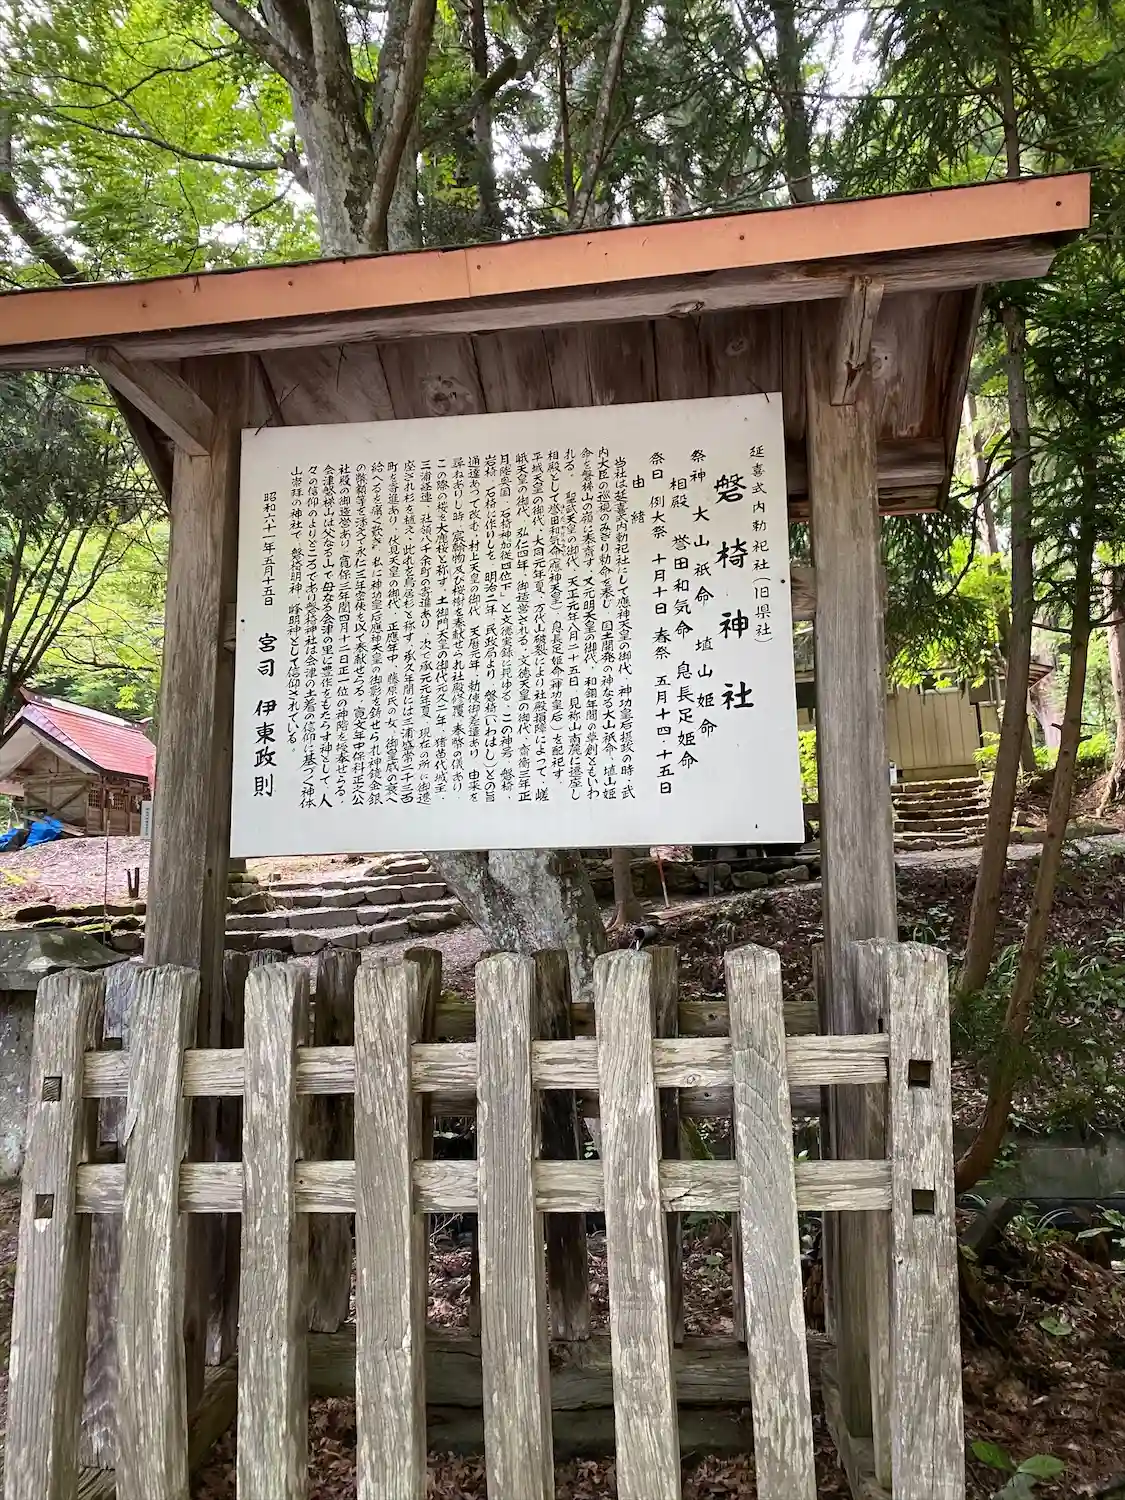 延喜式内勅祀社（旧県社）
磐椅神社
祭神 大山祇命 埴山姫命
相殿 誉田和気命 息長足姫命
祭日 例大祭 十月十日 春祭 五月十四・十五日
由緒
当社は延喜式内勅祀社にして應神天皇の御代、神功皇后摂政の時・武
内大臣の巡視のみぎり勅命を奉じ、国土開発の神なる大山祇命、埴山姫
命を磐椅山の嶺に奉斎す。又元明天皇の御代、和銅年間の草創ともいわ
れる。 聖武天皇の御代、天正元年八月二十五日、見祢山南麓に遷座し
相殿として誉田和気命(應神天皇)、息長足姫命(神功皇后)を配祀す
平城天皇の御代、大同元年夏、万代山破裂により社殿損障によって、嵯
峨天皇の御代、弘仁四年、御造営される。文徳天皇の御代、斎衡三年正
月陸奥国「石椅神加従四位下」と文徳実録に現ゆる、この神号、磐椅、
岩椅、石椅に作りしを、明治二年、民政局より、磐椅(いわはし)との旨
通達あつて改む。村上天皇の御代、天暦元年、勅使御差遣あり、由来を
尋ねありし時、宸翰物及び桜樹を奉献せられ社殿修理、奉幣の儀あり
この際の桜を大鹿桜と称す。土御門天皇の御代元久二年、猪苗代城主・
三浦経連、社領八千余町の寄進あり、次で承元元年夏、現在の所に御遷
座され杉を植え、此れを鳥居杉と称す。承久年間には三浦盛常二千三百
町を寄進あり、伏見天皇の御代、正應年中、藤原氏の女、御皇威の衰へ
給へるを痛く歎き、私に神功皇后應神天皇の御影を鋳せられ神鏡、金銀
の幣類等を添えて永仁三年壹使を以て奉献せらる。寛文年中保科正之公
社殿の御造営あり、寛保二年閏四月十二日正一位の神階を授奉せらる。
会津磐椅山は父なる山で母なる会津の里に豊作をもたらす神として、人
々の信仰のよりどころであり磐椅神社は会津の土着の信仰に基づく神体
山崇拝の神社で、磐椅明神・峰明神として信仰されている。
昭和六十一年五月十五日 宮司 伊東政則